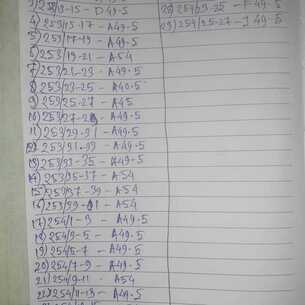 3) 253/13-15 - D49.5
4) 253/15-17 - A49.5
5) 253/17-19 - A49.5
6) 253/19-21 - A54
7) 253/21-23 - A49.5
8) 253/23-25 - A49.5
9) 253/25-27 - A45
10) 253/27-29 - A49.5
11) 253/29-31 - A49.5
12) 253/31-33 - A49.5
13) 253/33-35 - A49.5
14) 253/35-37 - A54
15) 253/37-39 - A54
16) 253/39-41 - A54
17) 254/1-3 - A49.5
18) 254/3-5 - A49.5
19) 254/5-7 - A49.5
20) 254/7-9 - A49.5
21) 254/9-11 - A54
22) 254/11-13 - A49.5
28) 254/23-25 - F49.5
29) 254/25-27 - I49.5